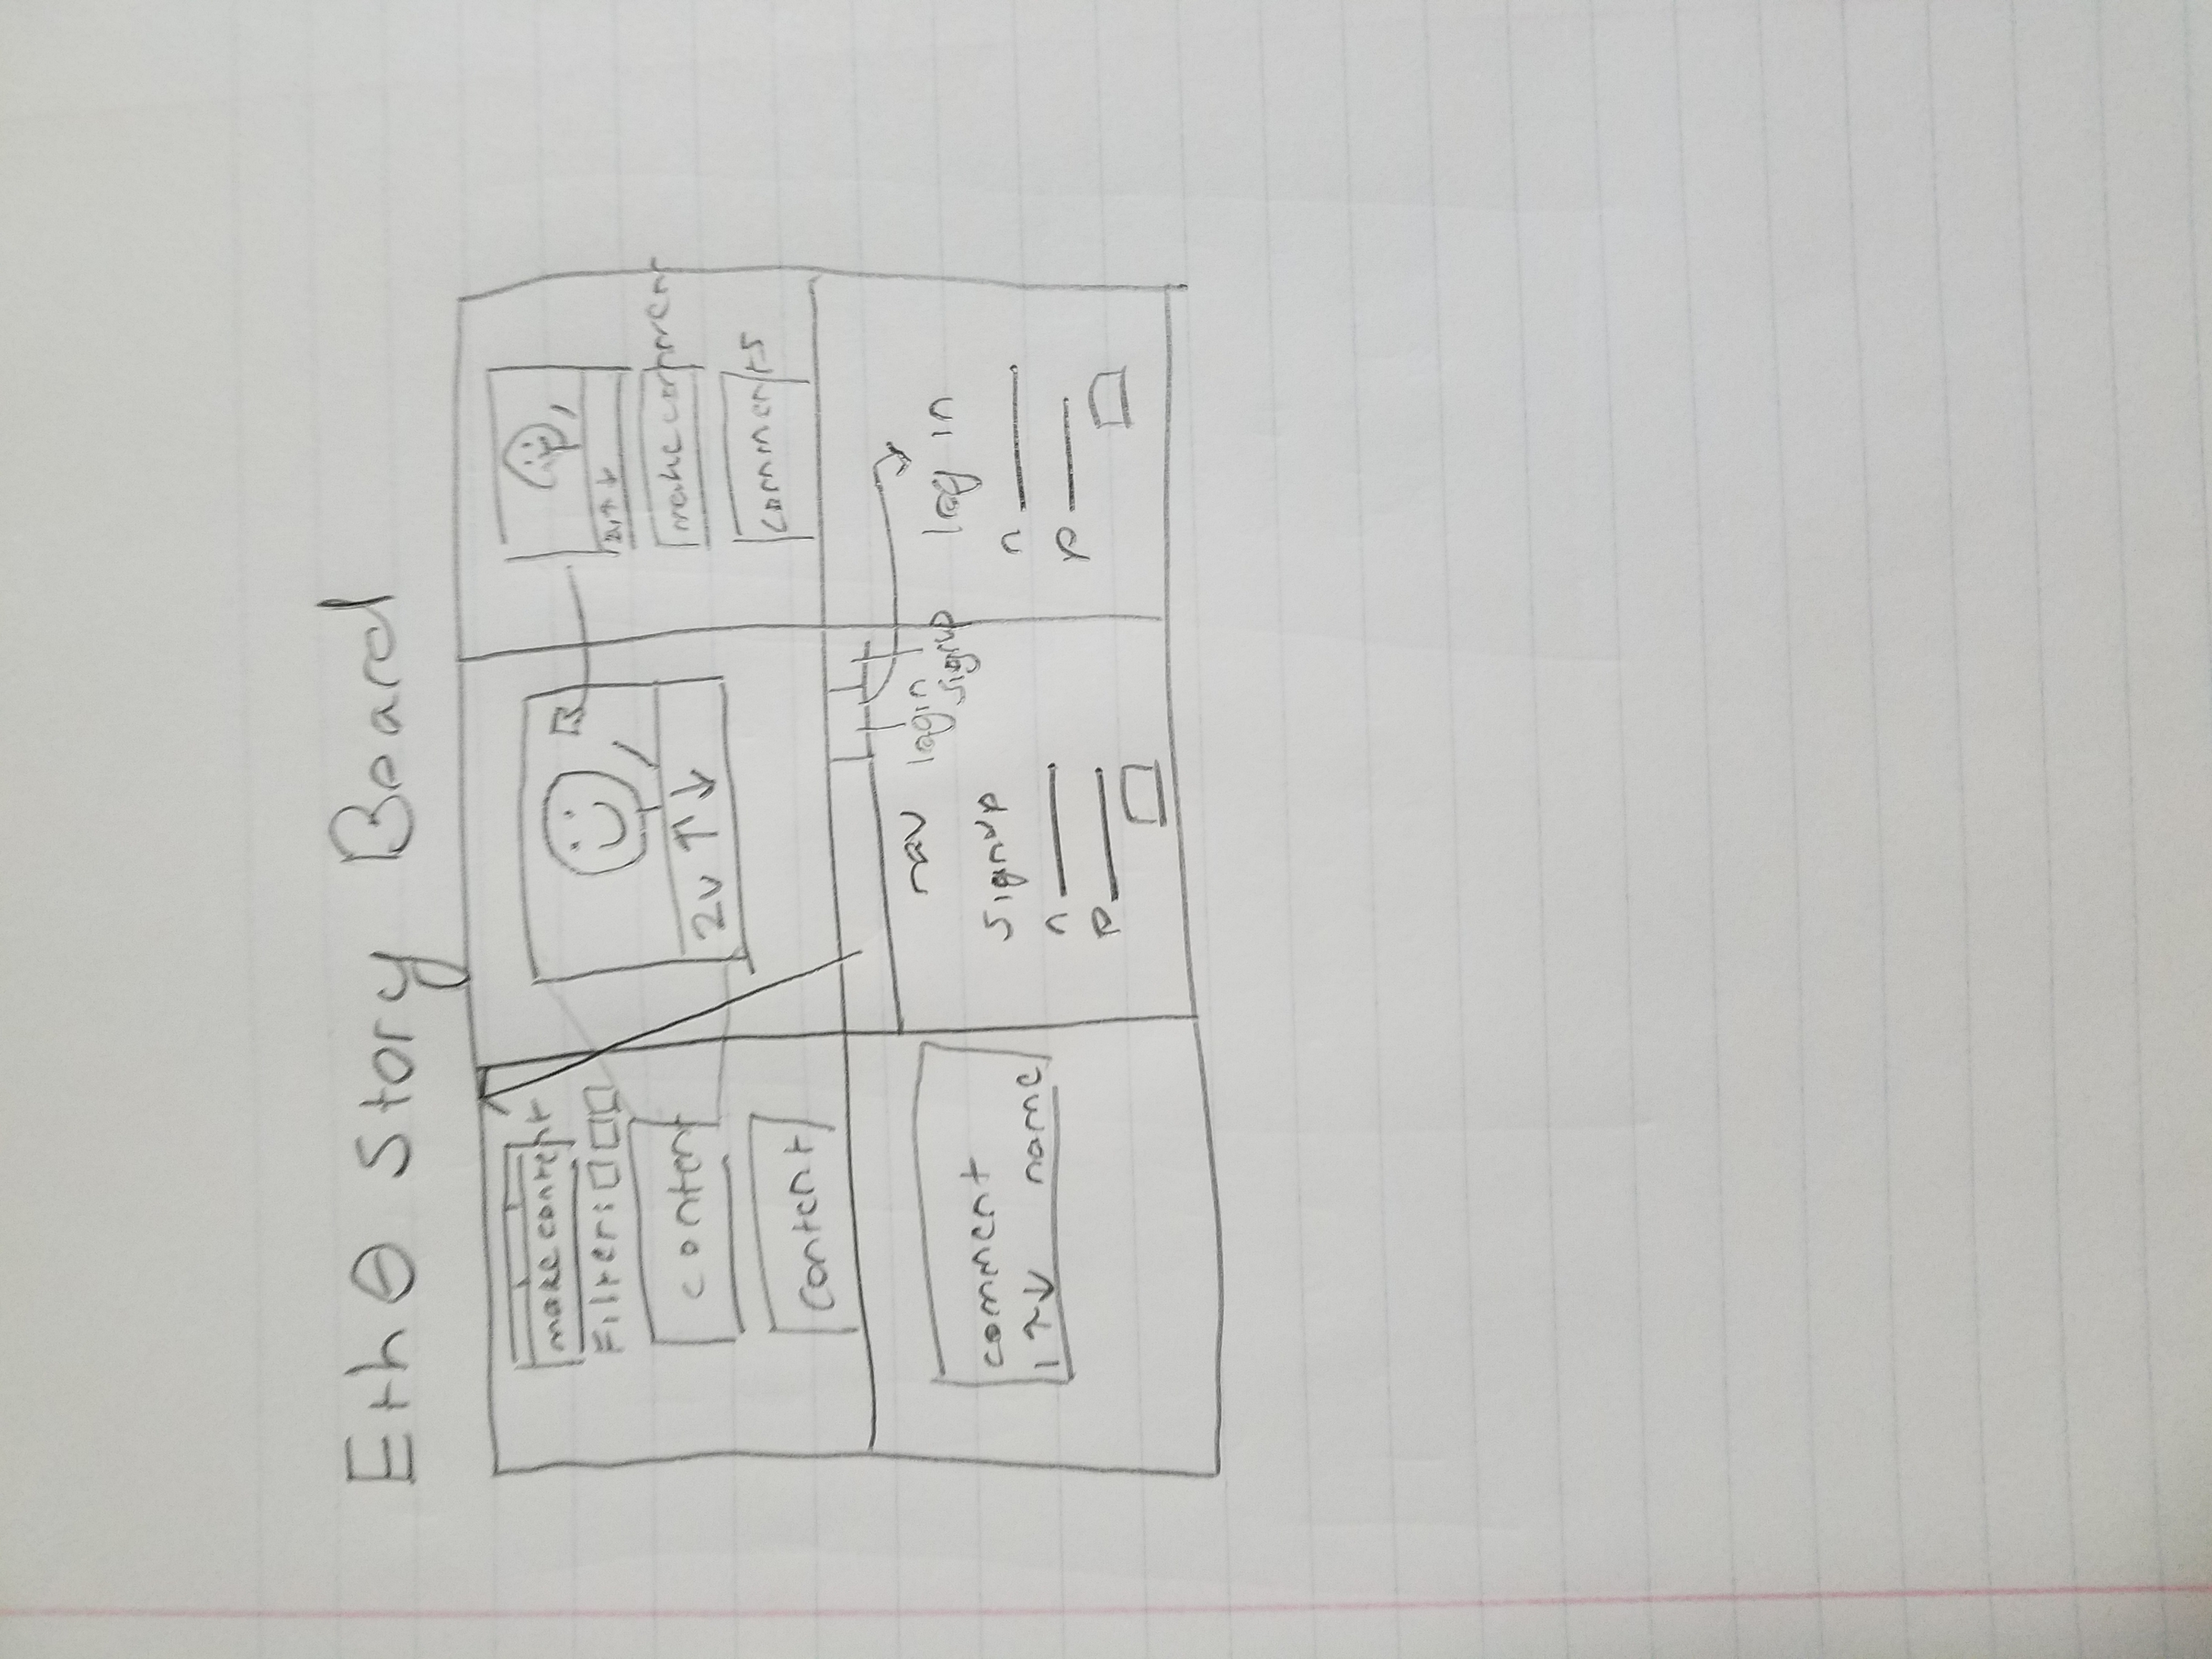 Ethθ Story Board
make content
Filter:
content
content
2v ↑ ↓
2v ↑ ↓
make comment
comments
comment
1 ↑↓ name
nav login signup
signup
n
p
log in
n
p